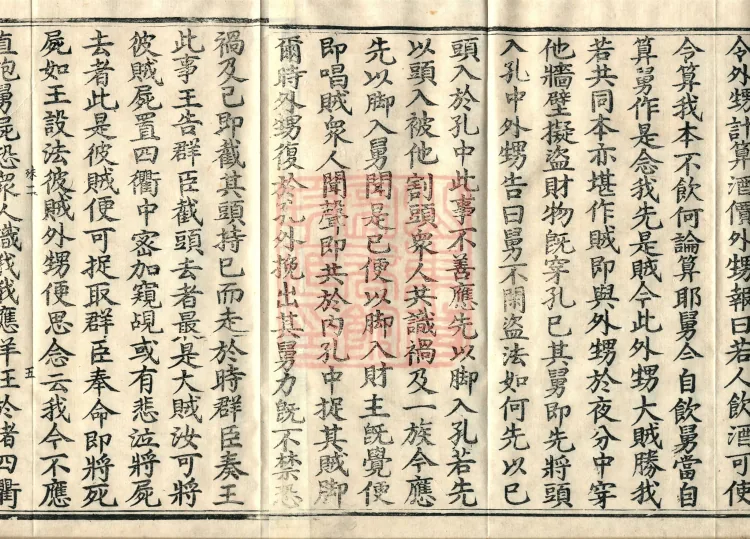 令外甥計算酒價外甥報曰若人飲酒可使
令算我本不飲何論算耶舅今自飲舅當自
算舅作是念我先是賊今此外甥大賊勝我
若共同本亦堪作賊即與外甥於夜分中穿
他牆壁擬盜財物既穿孔已其舅即先將頭
入孔中外甥告曰舅不閑盜法如何先以己
頭入於孔中此事不善應先以脚入孔若先
以頭入被他割頭衆人共識禍及一族今應
先以脚入舅聞是已便以脚入財主既覺便
即唱賊衆人聞聲即共於內孔中捉其賊脚
爾時外甥復於孔外挽出其舅力既不禁恐
禍及己即截其頭持已而走於時群臣奏王
此事王告群臣截頭去者最是大賊汝可將
彼賊屍置四衢中密加窺覘或有悲泣將屍
去者此是彼賊便可捉取群臣奉命即將死
屍如王設法彼賊外甥便思念云我今不應
二
五
直抱舅屍恐衆人識我我應佯狂於諸四衢